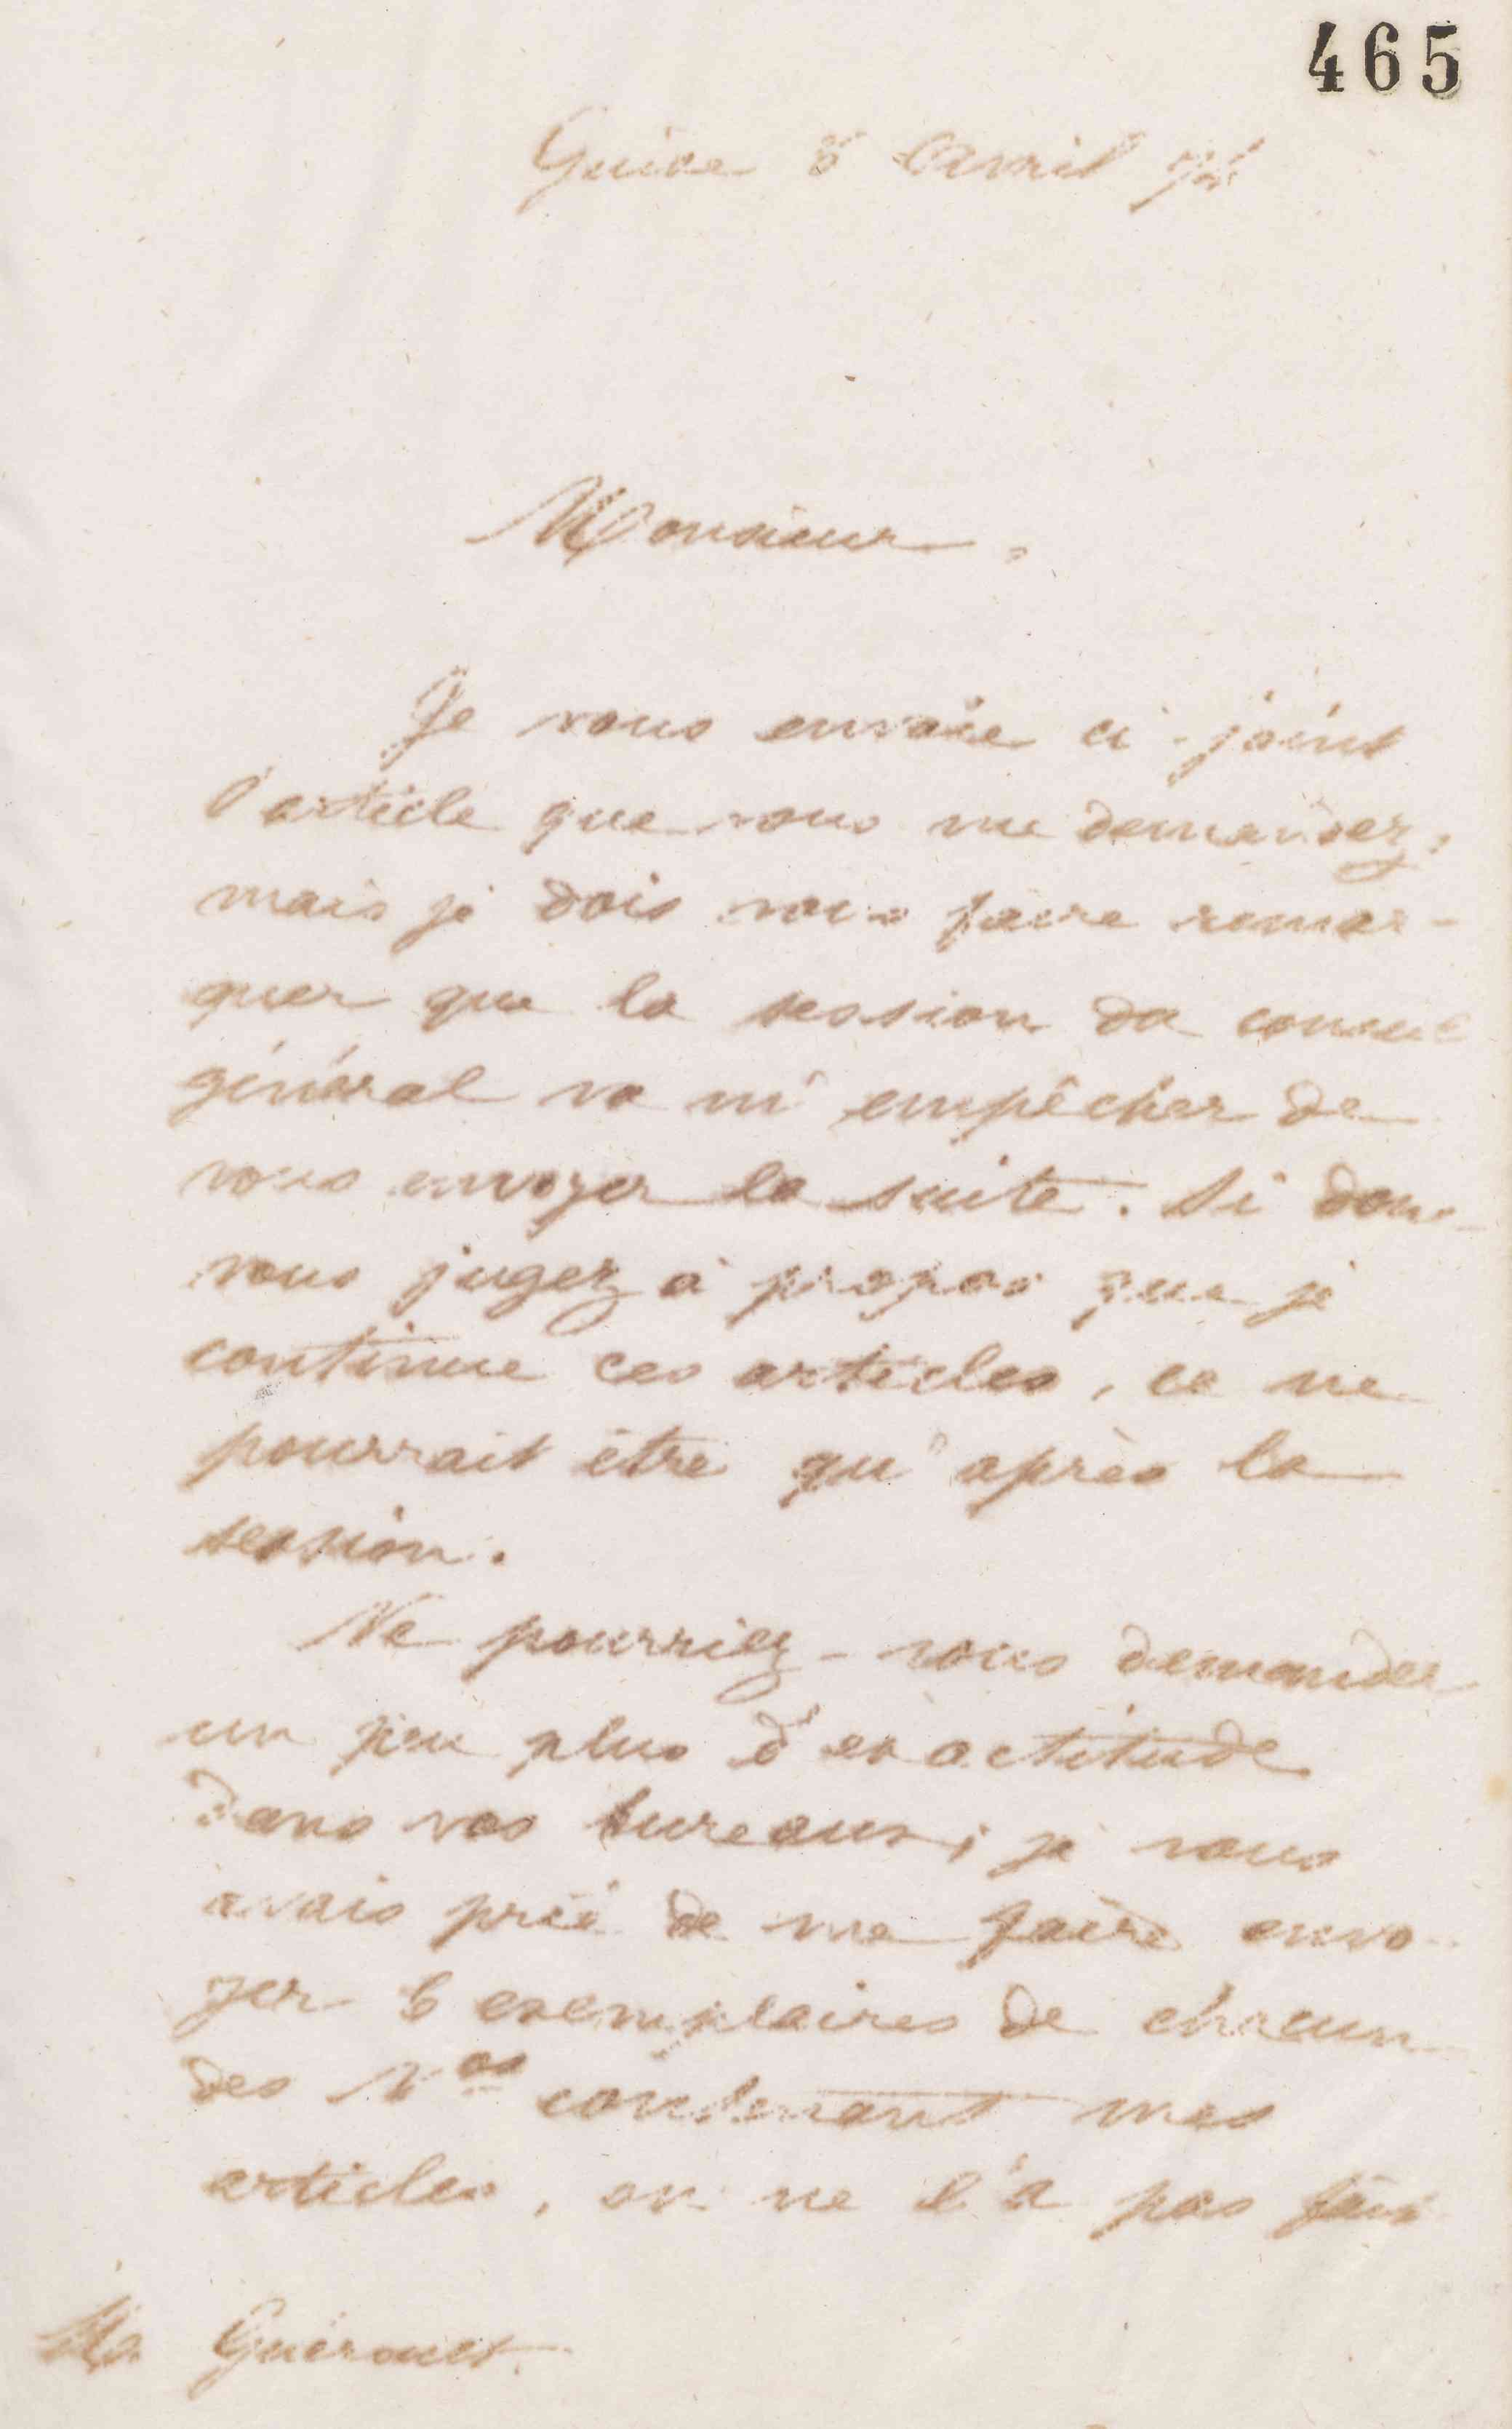 465
Guise 8 Avril 74
Monsieur,
Je vous envoie ci-joint
l'article que vous me demandez,
mais je dois vous faire remar-
quer que la session du conseil
général va m'empêcher de
vous envoyer la suite. Si donc
vous jugez à propos que je
continue ces articles, ce ne
pourrait être qu'après la
session.
Ne pourriez-vous demander
un peu plus d'exactitude
dans vos bureaux; je vous
avais prié de me faire envo-
yer 6 exemplaires de chacun
des Nos contenant mes
articles, on ne l'a pas fait
Mr Guéroult